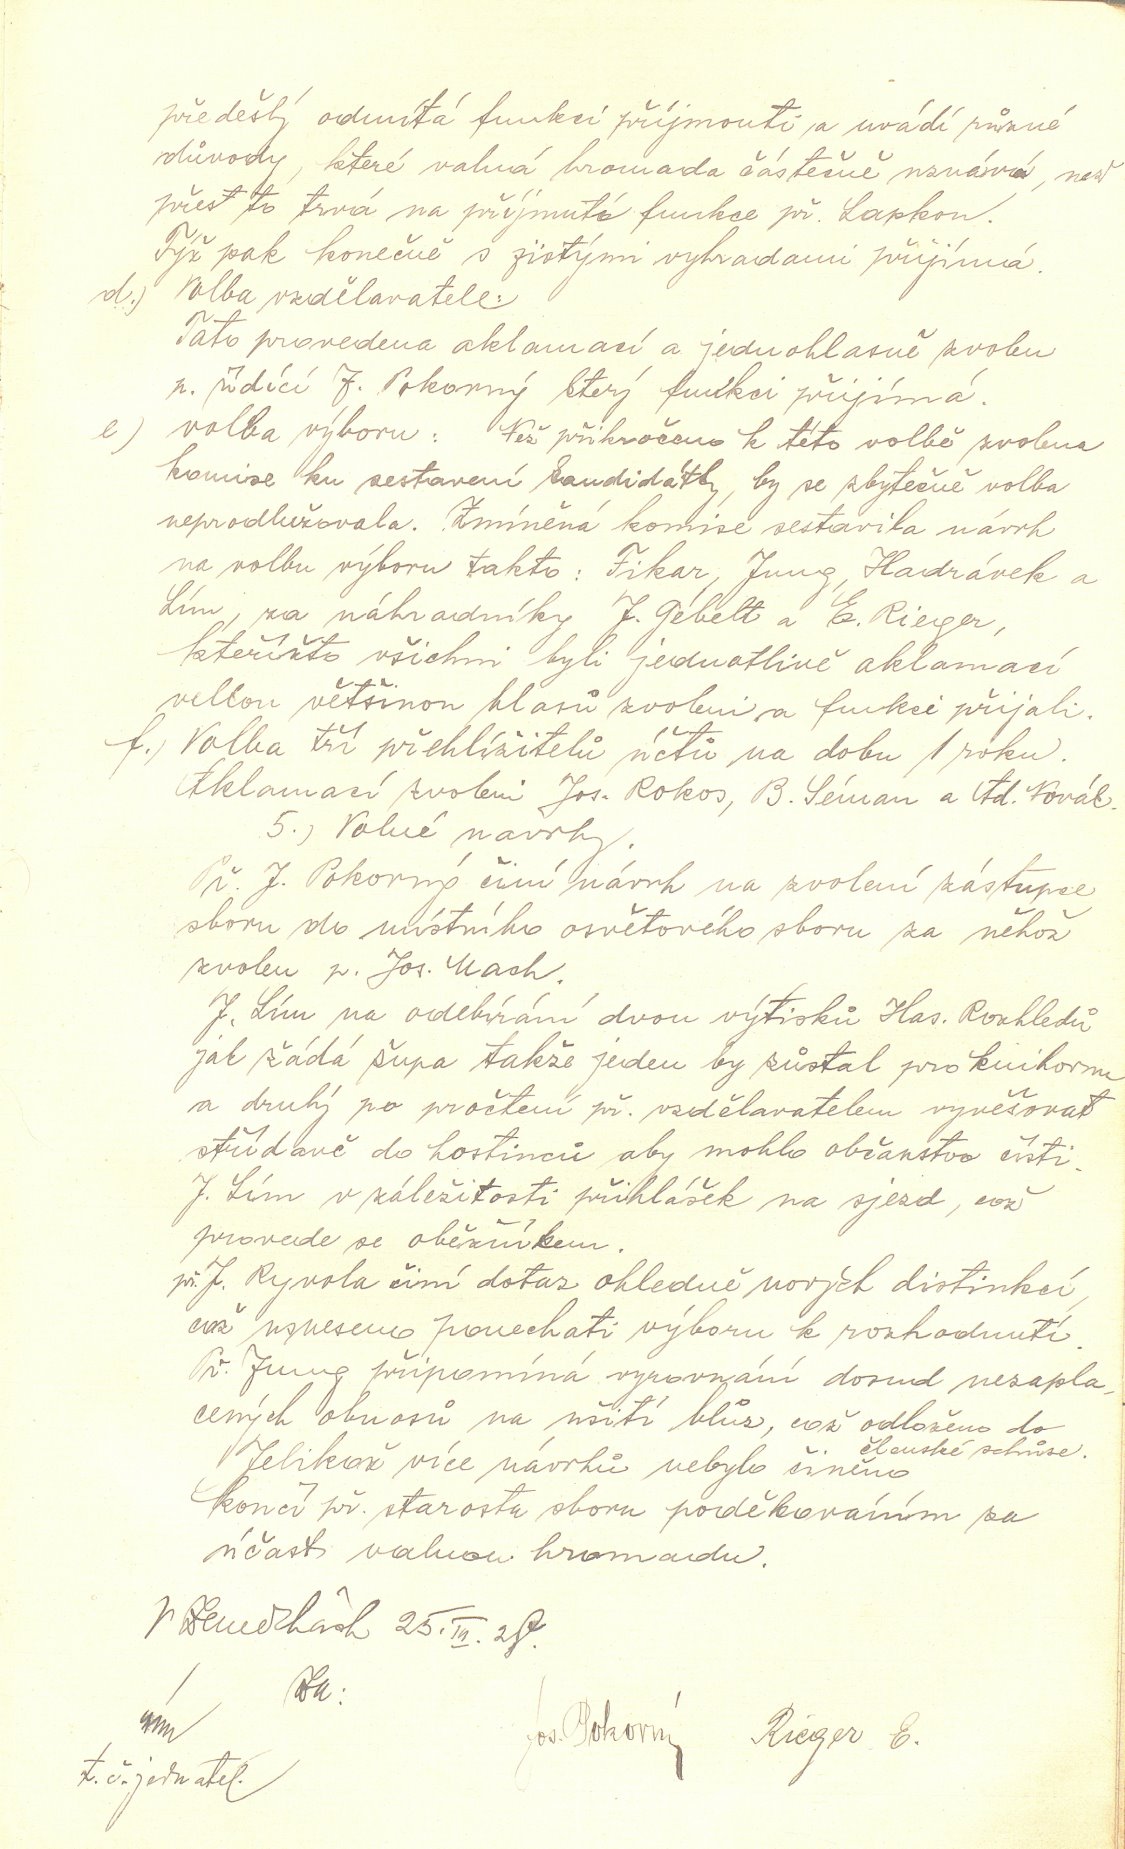 předešlý odmítá funkci příjmouti a uvádí různé
důvody, které valná hromada částečně uznává, než
přest to trvá na příjmutí funkce př. Lapkou.
Týž pak konečně s jistými vyhradami přijímá.
d.) Volba vzdělavatele:
Tato provedena aklamací a jednohlasně zvolen
p. řídící J. Pokorný který funkci přijímá.
e) volba výboru: Než přikročeno k této volbě zvolena
komise ku sestavení kandidátky, by se zbytečně volba
neprodlužovala. Zmíněná komise sestavila návrh
na volbu výboru takto: Fikar, Jung, Hadrávek a
Lím, za náhradníky J. Gébelt a E. Rieger,
kteřížto všichni byli jednotlivě aklamací
velkou většinou hlasů zvoleni a funkci přijali.
f.) Volba tří přehlížitelů účtů na dobu 1 roku.
Aklamací zvoleni Jos. Rokos, B. Séman a Ad. Novák.
5.) Volné návrhy.
Př. J. Pokorný činí návrh na zvolení zástupce
sboru do místního osvětového sboru za něhož
zvolen p. Jos. Mach.
J. Lím na odebírání dvou výtisků Has. Rozhledů
jak žádá župa takže jeden by zůstal pro knihovnu
a druhý po pročtení př. vzdělavatelem vyvěšovat
střídavě do hostinců aby mohlo občanstvo čísti.
J. Lím v záležitosti přihlášek na sjezd, což
provede se oběžníkem.
př. J. Ryvola činí dotaz ohledně nových distinkcí,
což usneseno ponechati výboru k rozhodnutí.
Př. Jung připomíná vyrovnání dosud nezapla-
cených obnosů na ušití blůz, což odloženo do
členské schůze.
Jelikož více návrhů nebylo činěno
končí př. starosta sboru poděkováním za
účast valnou hromadu.
V 25.
Za:
t. č. jednatel.
Jos. Pokorný Rieger E.